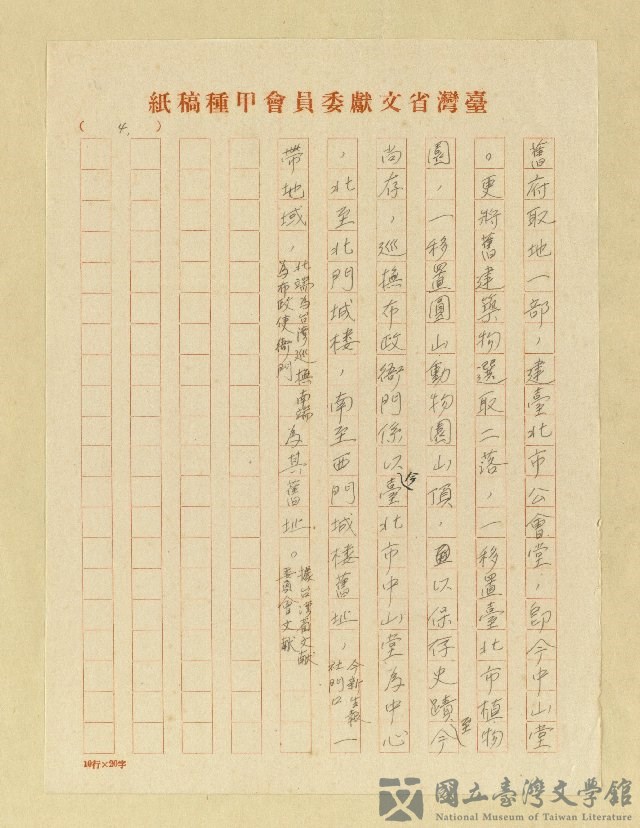 臺灣省文獻委員會甲種稿紙
( 4. )
舊府取地一部，建臺北市公會堂，即今中山堂
。更將舊建築物選取二落，一移置臺北市植物
園，一移置圓山動物園山頂，以保存史蹟至今
尚存，巡撫布政衙門係以今臺北市中山堂為中心
，北至北門城樓，南至西門城樓舊址，今新生報社門口一
帶地域，北端為台灣巡撫南端為布政使衙門為其舊址。據台灣省文獻委員會文獻
10行×20字
國立臺灣文學館
National Museum of Taiwan Literature